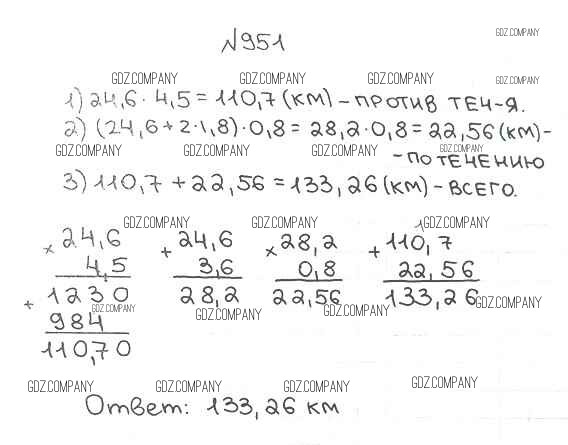 №951
GDZ.COMPANY
GDZ.COMPANY GDZ.COMPANY GDZ.COMPANY
1) 24,6 · 4,5 = 110,7 (км) – против теч-я.
2) (24,6 + 2 · 1,8) · 0,8 = 28,2 · 0,8 = 22,56 (км) –
GDZ.COMPANY GDZ.COMPANY GDZ.COMPANY GDZ.COMPANY
– по течению
3) 110,7 + 22,56 = 133,26 (км) – всего.
GDZ.COMPANY GDZ.COMPANY GDZ.COMPANY
× 24,6 + 24,6 × 28,2 + 110,7
1
4,5 3,6 0,8 22,56
+ 1230 28,2 22,56 133,26
GDZ.COMPANY GDZ.COMPANY GDZ.COMPANY GDZ.COMPANY
984
110,70
GDZ.COMPANY GDZ.COMPANY GDZ.COMPANY GDZ.COMPANY
Ответ: 133,26 км